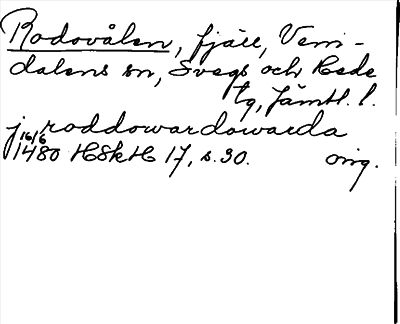 Rodovålen, fjäll, Vem-
dalens sn, Svegs och Hede
tg, Jämtl. l.
j roddowardowarda
16/6 1480 HSkH 17, s. 30. orig.